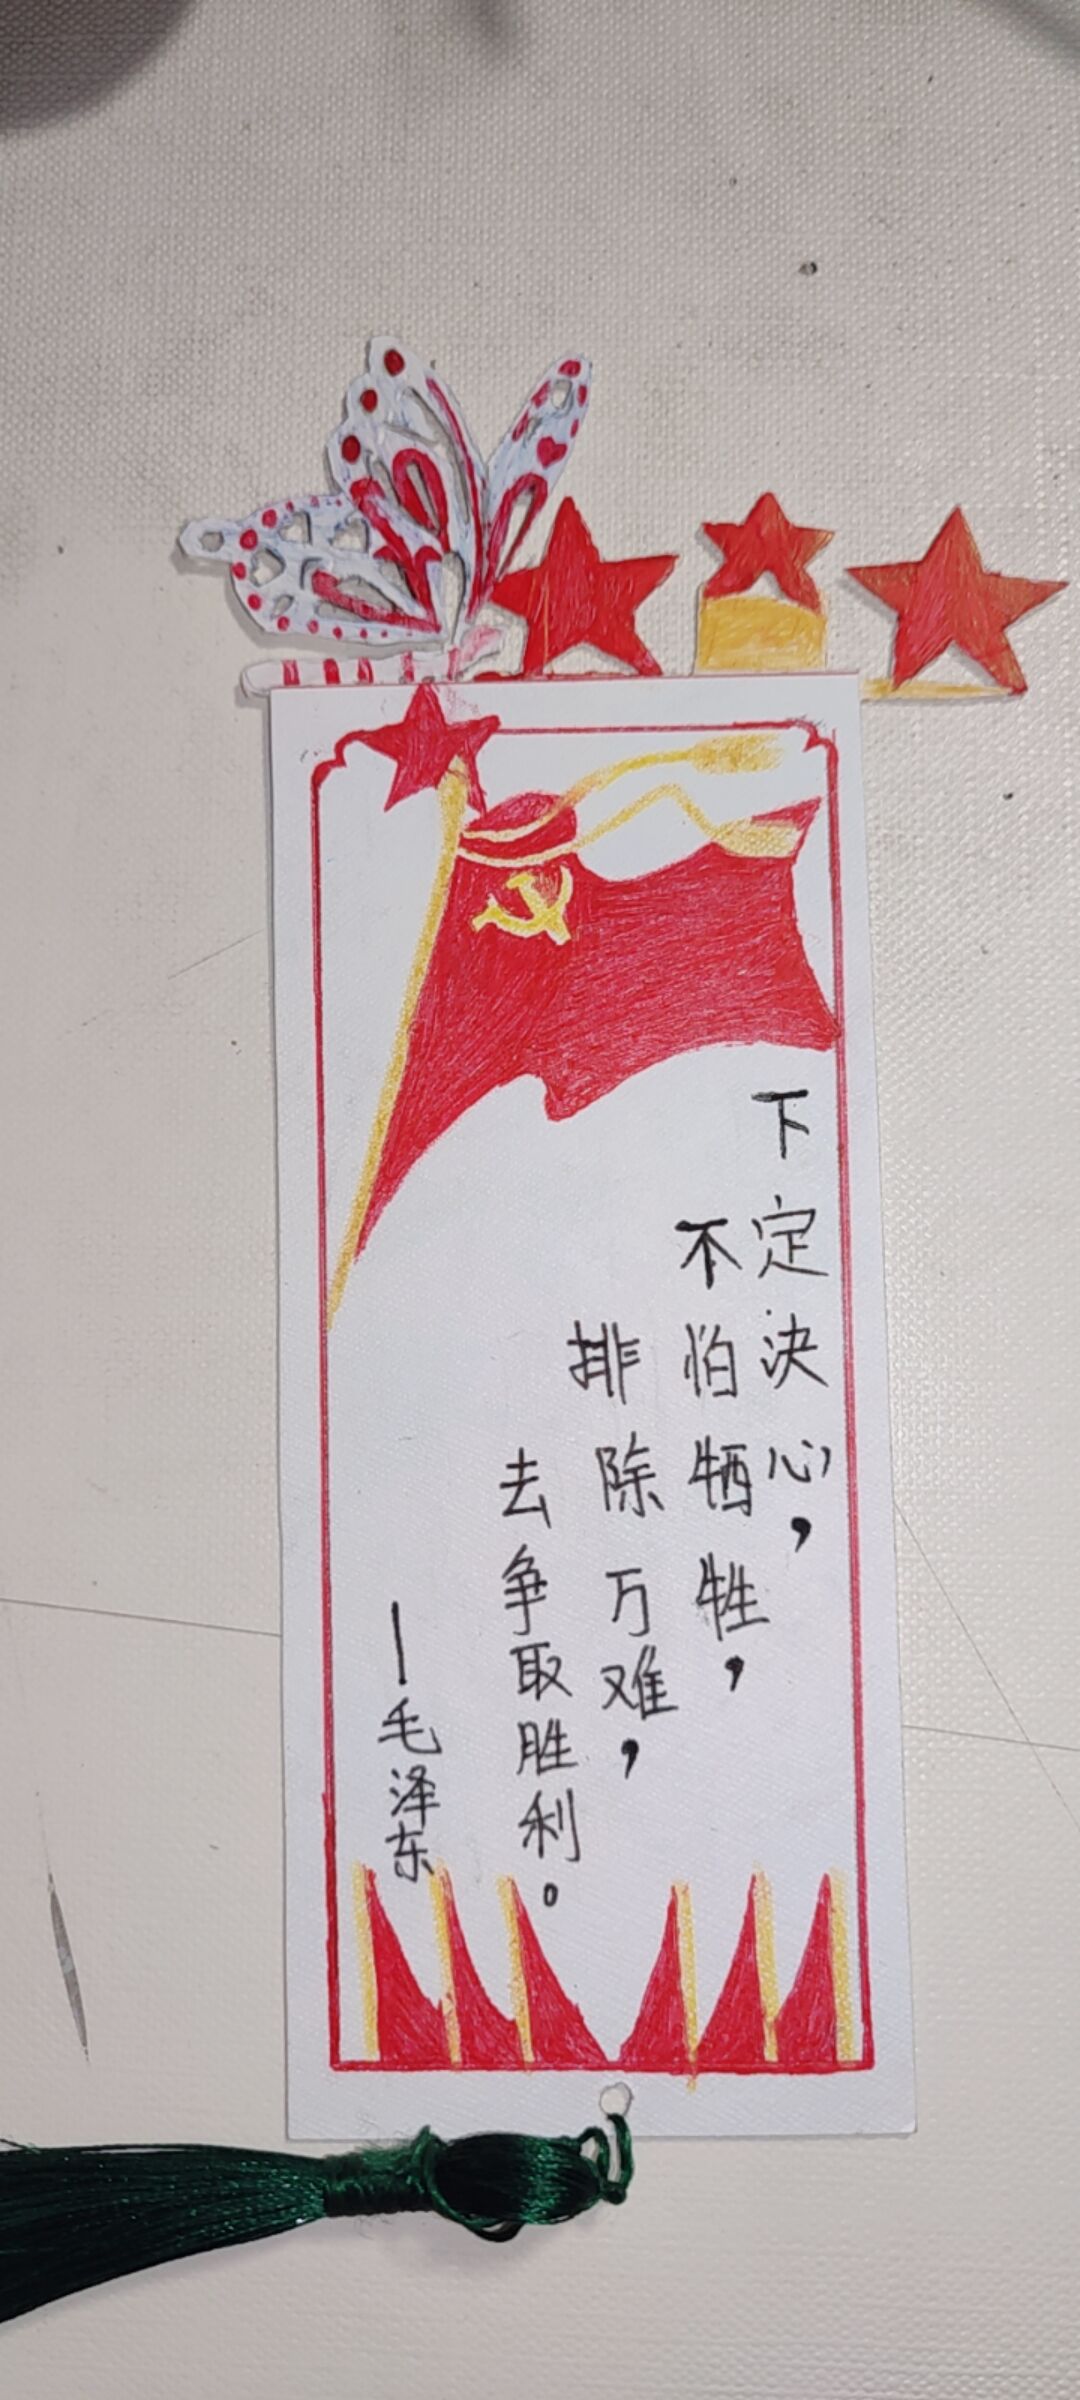 下定决心，
不怕牺牲，
排除万难，
去争取胜利。
—毛泽东